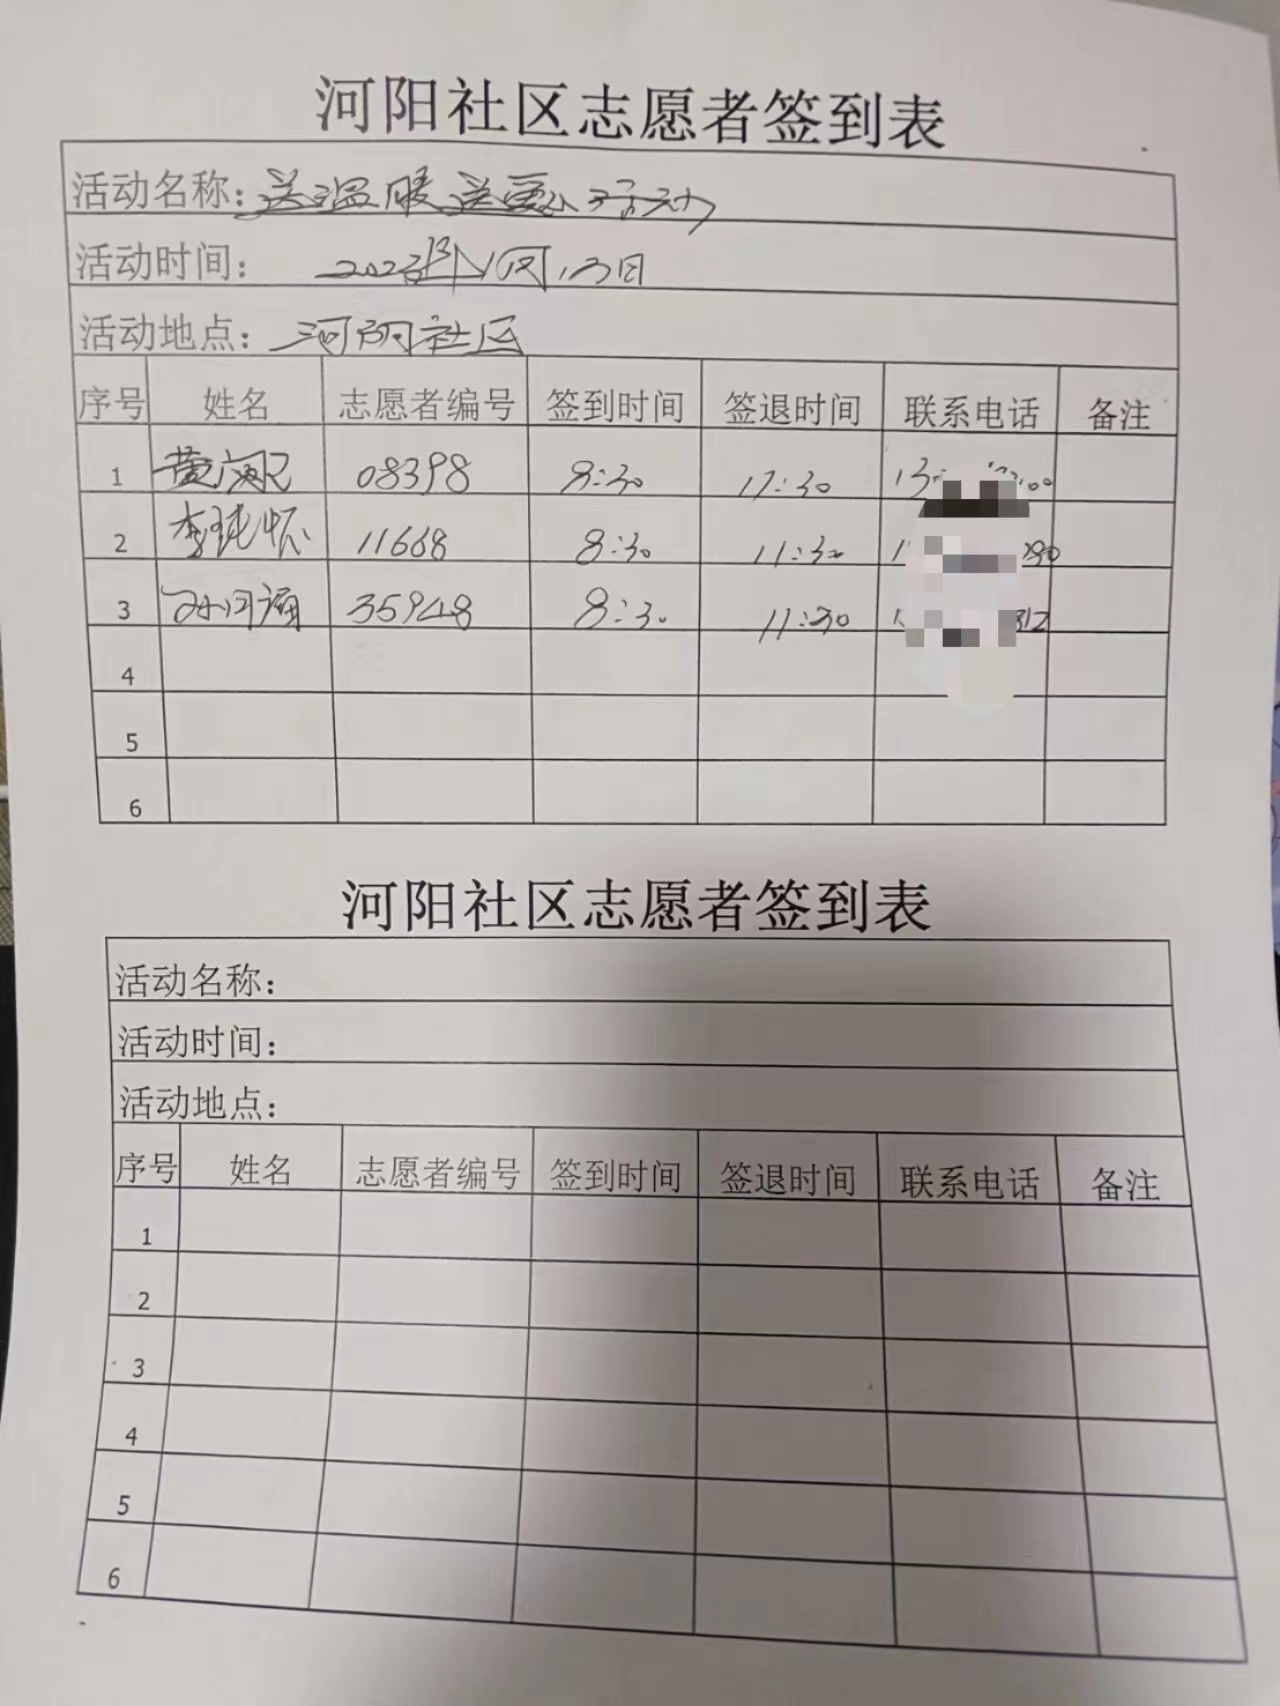 河阳社区志愿者签到表
活动名称：送温暖送爱心活动
活动时间： 2023年1月13日
活动地点：河阳社区
序号 姓名 志愿者编号 签到时间 签退时间 联系电话 备注
1 黄 08398 8:30 17:30
2 李 11668 8:30 11:30
3 孙 35948 8:30 11:30
4
5
6
河阳社区志愿者签到表
活动名称：
活动时间：
活动地点：
序号 姓名 志愿者编号 签到时间 签退时间 联系电话 备注
1
2
3
4
5
6